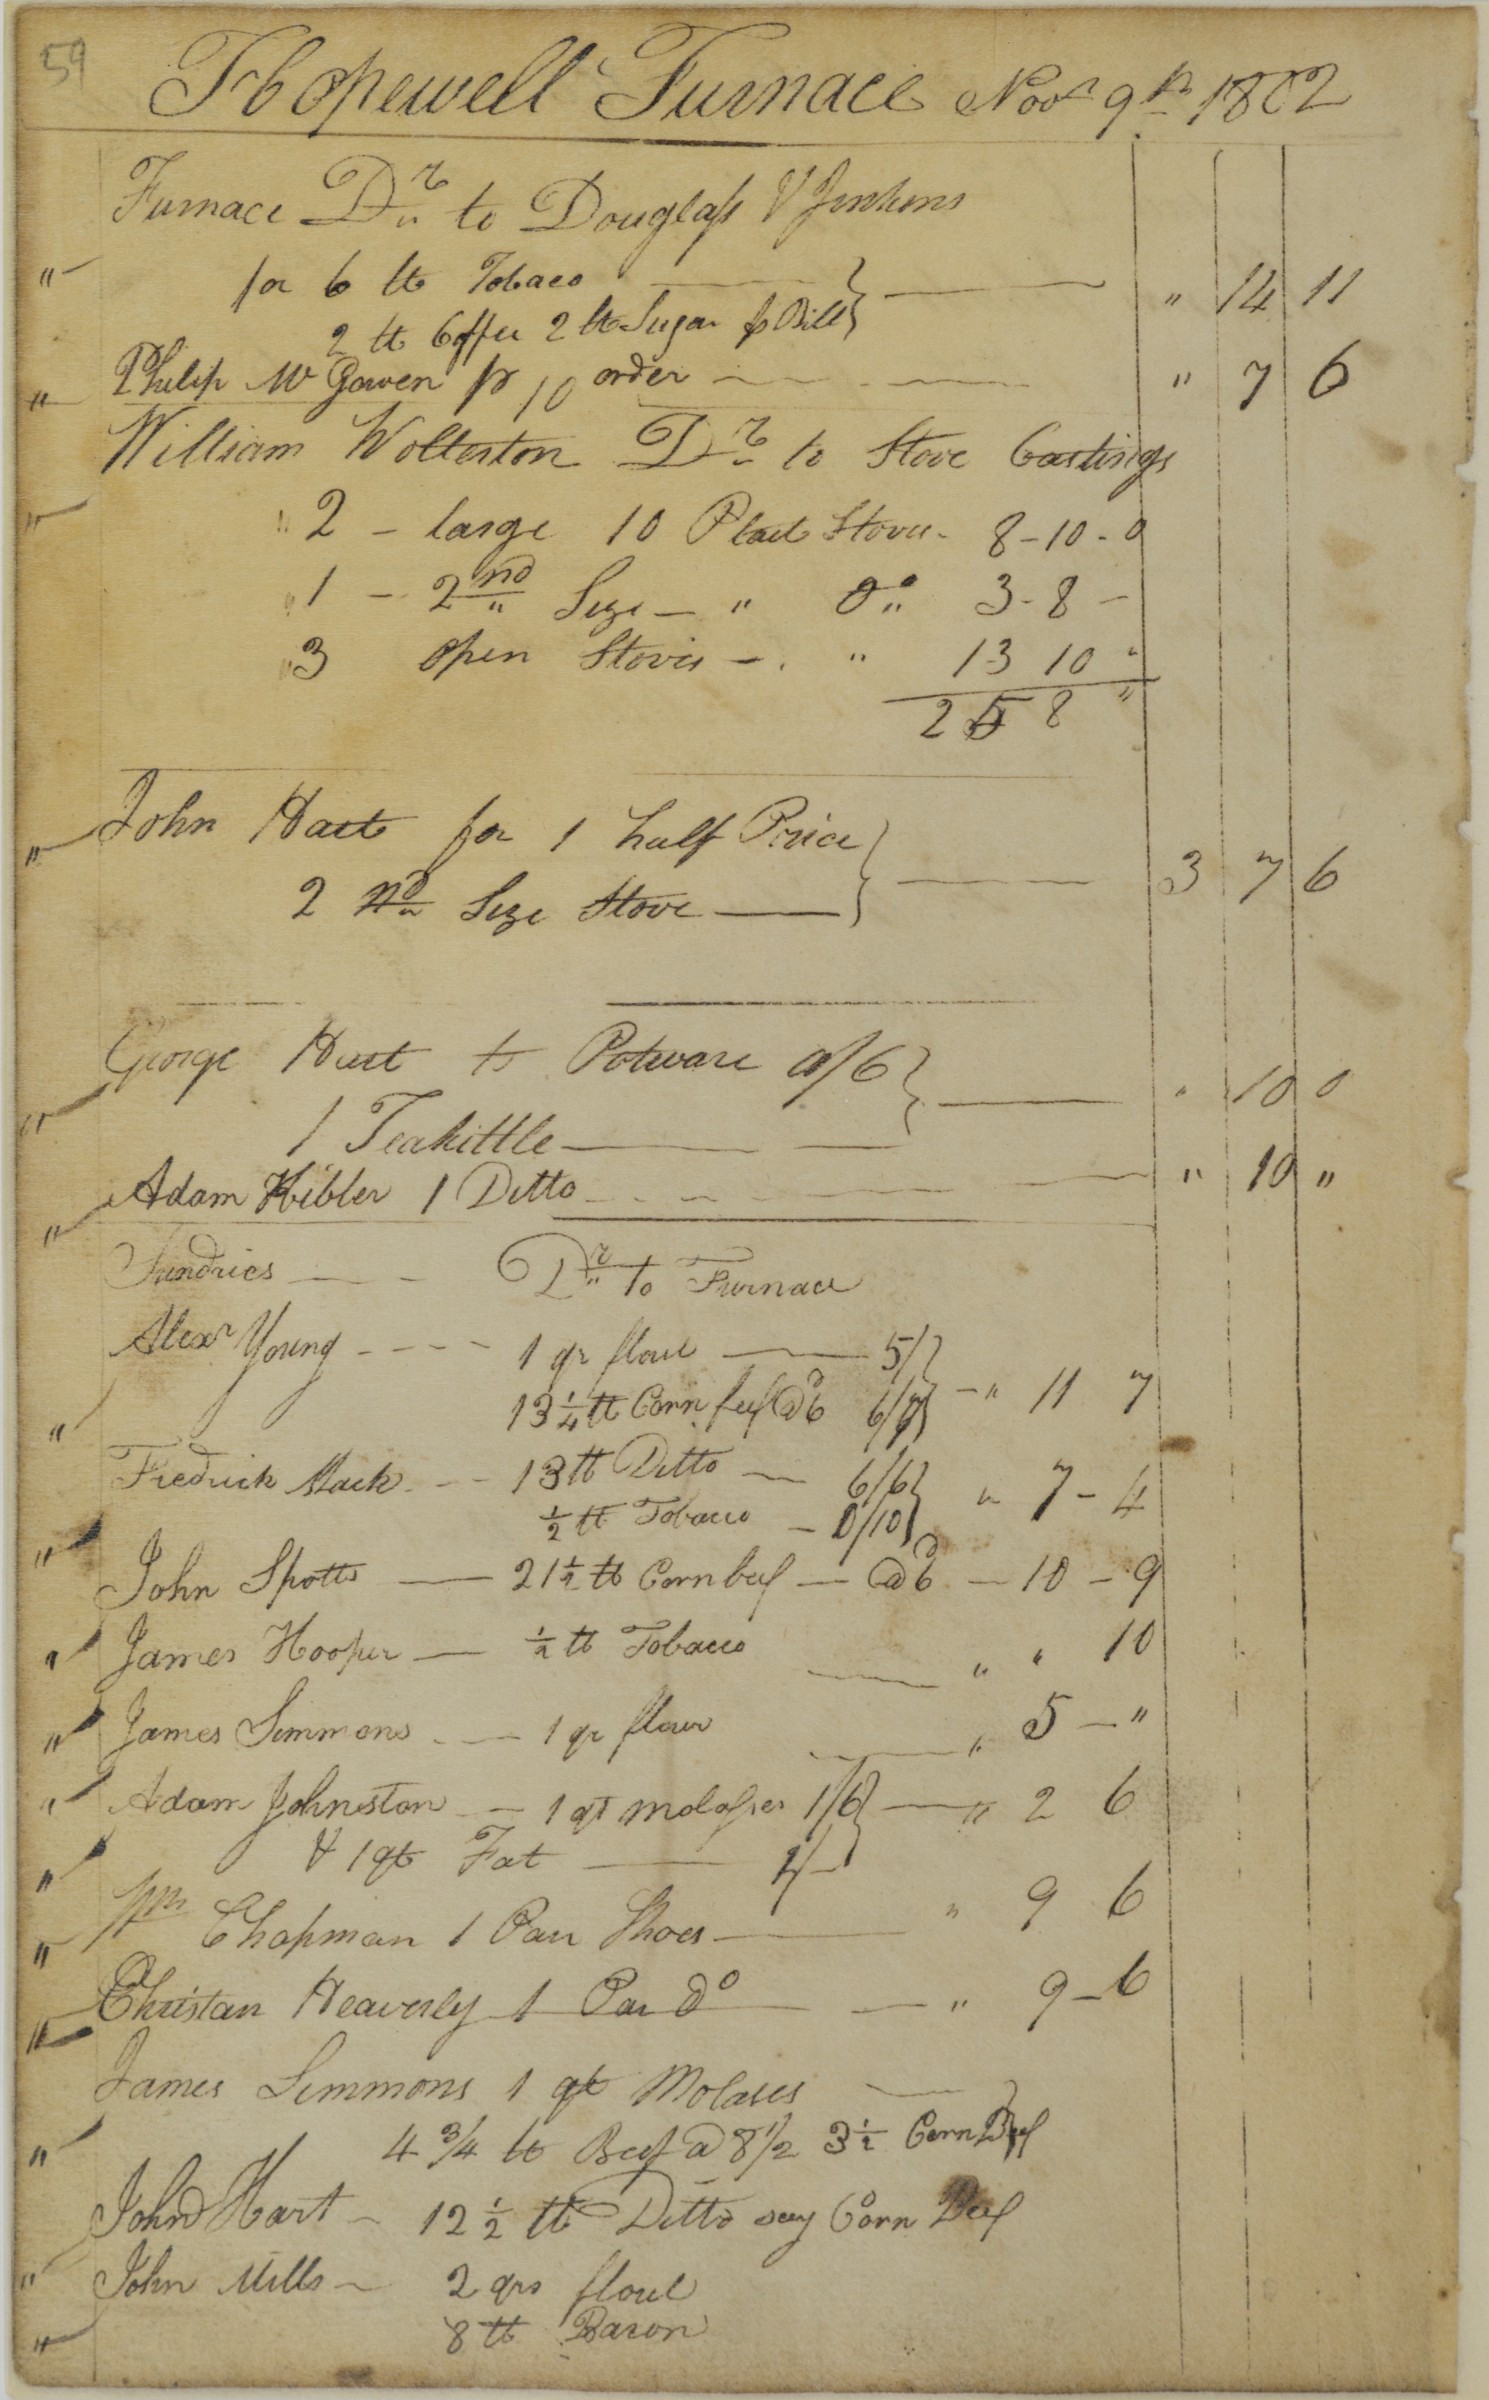 59
Hopewell Furnace Novr 9th 1802
Furnace Dr to Douglass & Jenkins
" for 6 lb Tobaco " 14 11
2 lb Coffee 2 lb Sugar pr Bill
" Philip Mc Gowen pr 10 order " 7 6
William Wolterston Dr to Stove Castings
" " 2 - large 10 Plate Stoves - 8-10-0
" 1 - 2nd Size - " Do " 3-8-
" 3 open Stoves - " 13 10 "
25 8 "
" John Hart for 1 half Price 3 7 6
2nd Size Stove
George Hart to Potware a/6
" 1 Teakittle " 10 0
" Adam Hibler 1 Ditto " 10 "
Sundries Dr to Furnace
Alexr Young 1 qr flour 5/
" 13 1/4 lb Corn beef @ 6d 6/7 " 11 7
Fredrick Mack 13 lb Ditto 6/6 " 7-4
" 1/2 lb Tobacco - 0/10
John Spotts 21 1/2 lb Corn beef @ 6d - 10-9
" James Hooper 1/2 lb Tobacco " " 10
" James Simmons 1 qr flour " 5 - "
" Adam Johnston 1 qt molasses 1/6 " 2 6
" & 1 qt Fat 1/-
" Chapman 1 Pair Shoes " 9 6
Christan Heaverly 1 Par do " 9-6
" James Simmons 1 qt Molases
" 4 3/4 lb Beef @ 8 1/2 3 1/2 Corn Beef
John Hart - 12 1/2 lb Ditto say Corn Beef
" John Mills - 2 qrs flour
" 8 lb Bacon